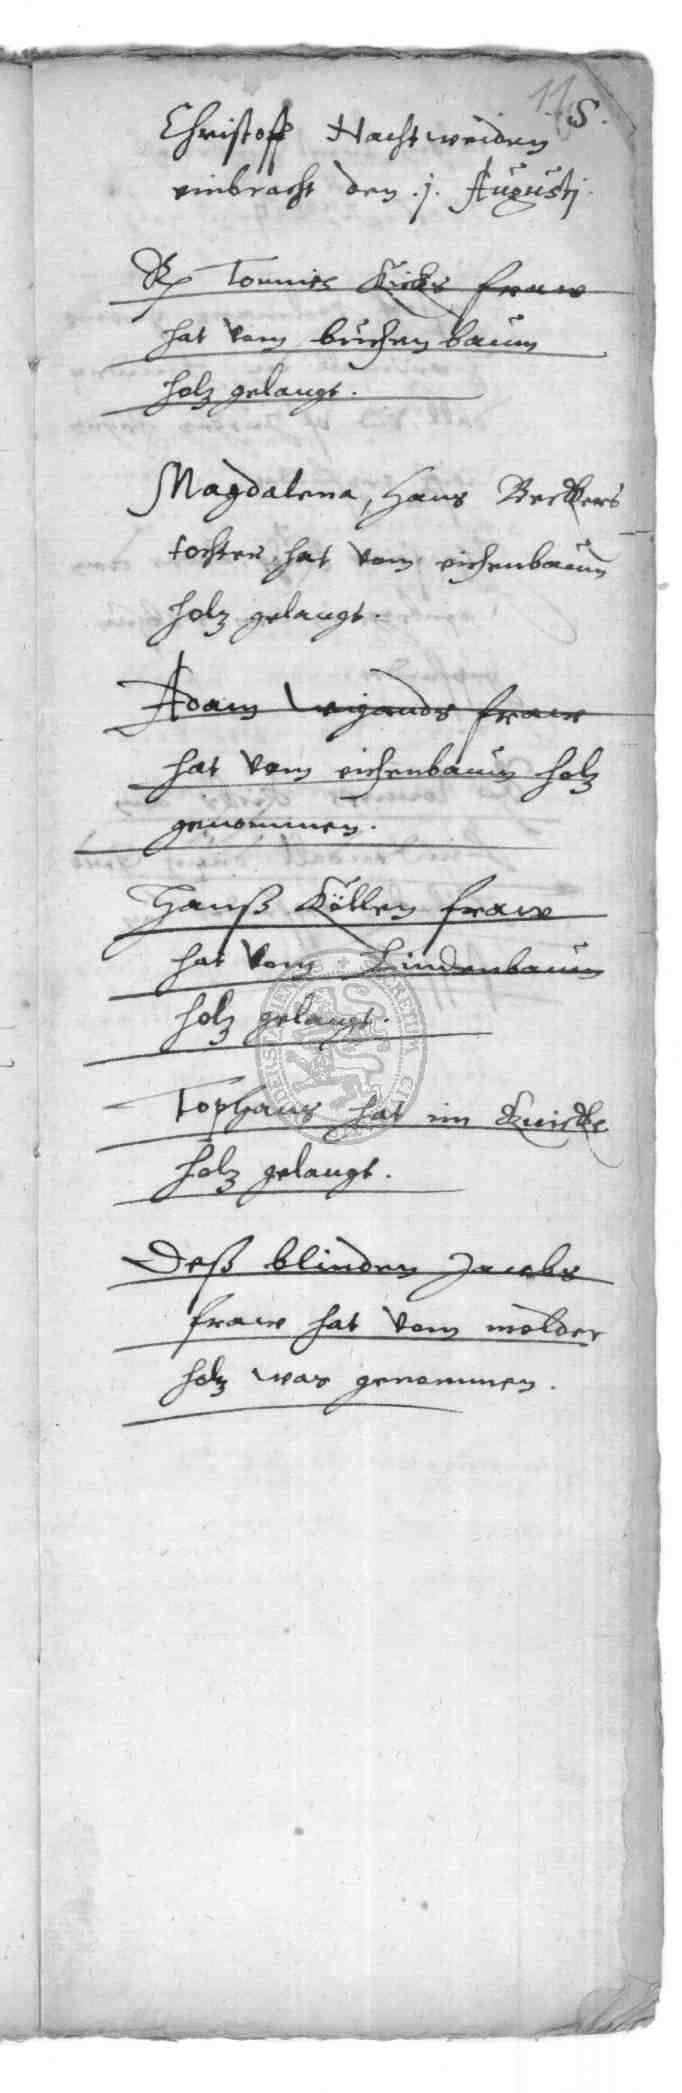 11
S.
Christoff Nachtweiden
einbracht den .j. Augusti.
Tonnies Kicks fraw
hat vom buchen baum
holz gelangt.
Magdalena, Hans Beckers
tochter hat vom eichenbaum
holz gelangt.
Adam Wigands fraw
hat vom eichenbaum holz
genommen.
Hanß Köllen fraw
hat vom Lindenbaum
holz gelangt.
Tophans hat im
holz gelangt.
Deß blinden Jacobs
fraw hat vom molder
holz was genommen.